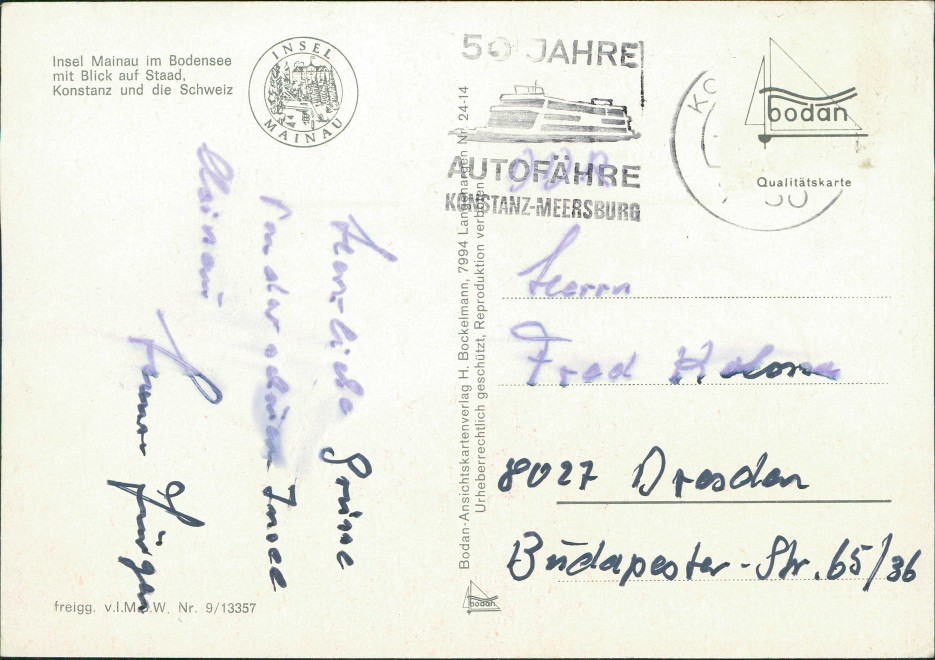 Insel Mainau im Bodensee
mit Blick auf Staad,
Konstanz und die Schweiz
INSEL
MAINAU
Herzliche Grüsse
von der schönen Insel
Mainau
Jürgen
freigg. v.I.M.D.W. Nr. 9/13357
Bodan-Ansichtskartenverlag H. Bockelmann, 7994 Langenargen Nr. 24-14
Urheberrechtlich geschützt, Reproduktion verboten
bodan
50 JAHRE
AUTOFÄHRE
KONSTANZ-MEERSBURG
DDR
KO
bodan
Qualitätskarte
Herrn
Fred
8027 Dresden
Budapester-Str. 65/36